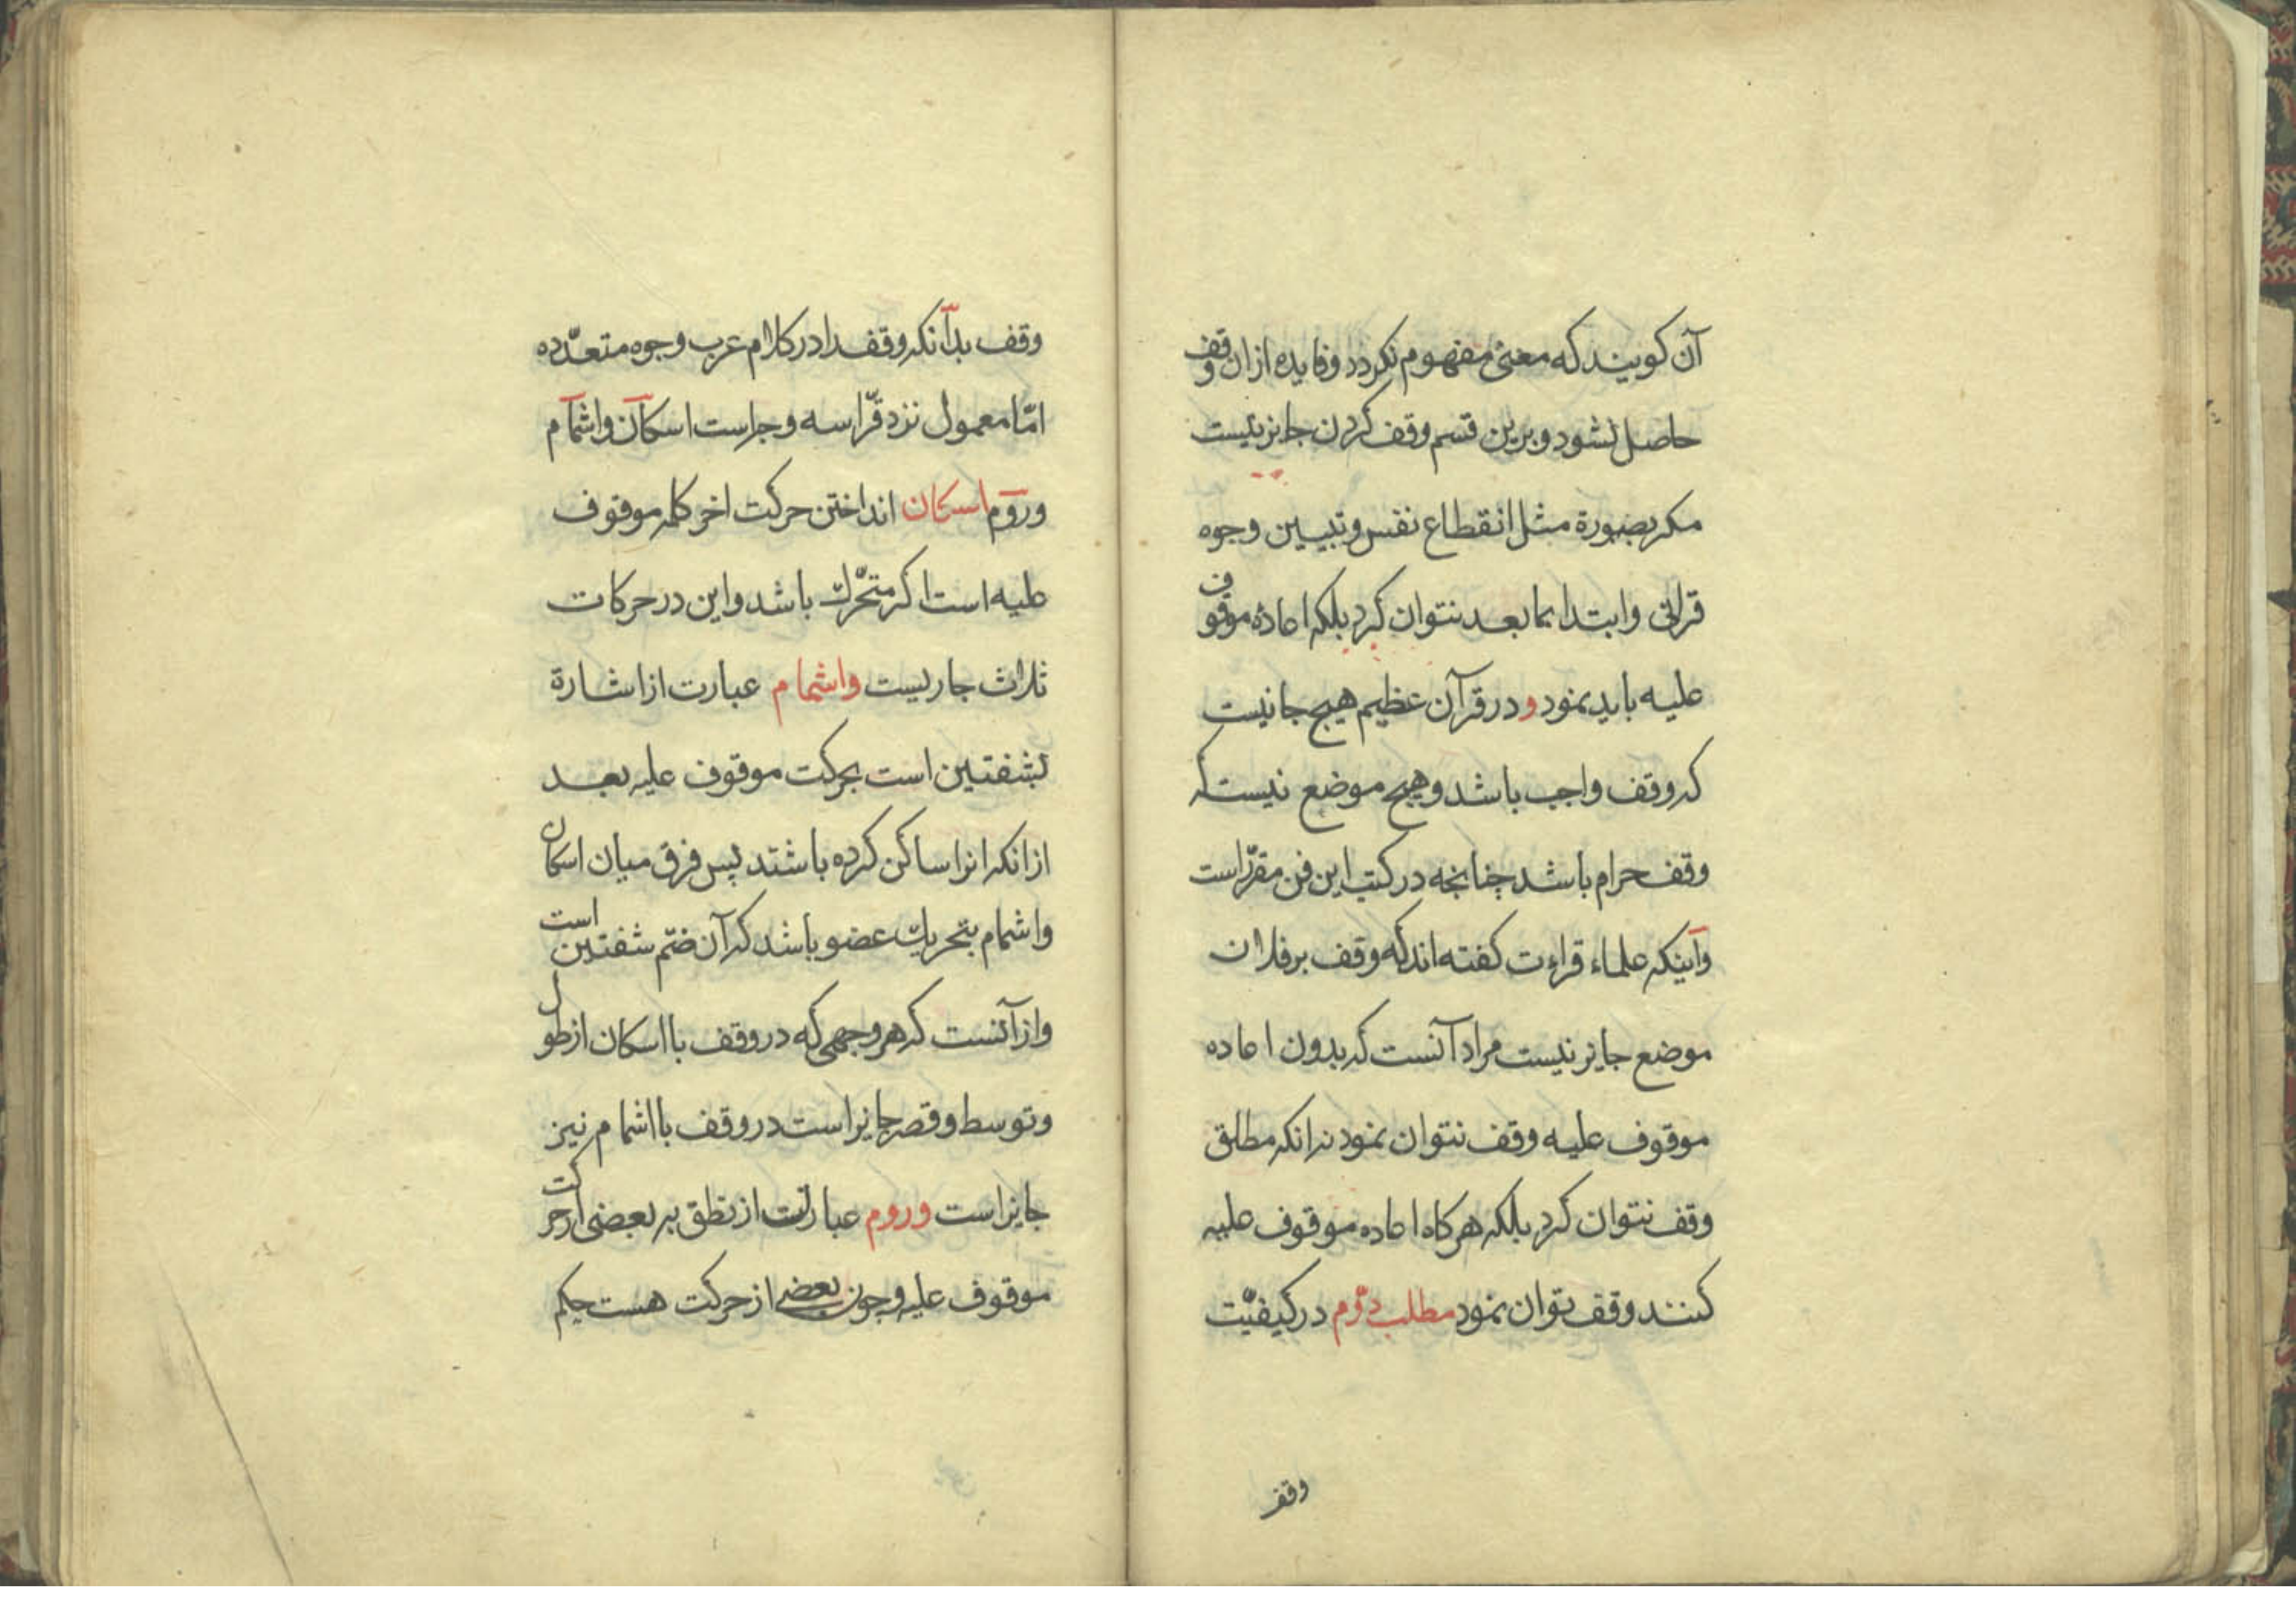 آن کویند که معنی مفهوم نکردد وفایده ازان وقف
حاصل نشود و برین قسم وقف کردن جایز نیست
مکر بصورة مثل انقطاع نفس و تبیین وجوه
قرائی وابتدا بما بعد نتوان کرد بلکه اعادهٔ موقوف
علیه باید نمود و در قرآن عظیم هیچ جا نیست
که وقف واجب باشد و هیچ موضع نیست که
وقف حرام باشد چنانچه در کتب این فن مقرّر است
وآینکه علماء قراءت کفته اند که وقف بر فلان
موضع جایز نیست مراد آنست که بدون اعاده
موقوف علیه وقف نتوان نمود نه انکه مطلق
وقف نتوان کرد بلکه هرکاه اعاده موقوف علیه
کنند وقف توان نمود مطلب دوّم در کیفیّت
وقف
وقف بدآنکه وقف را در کلام عرب وجوه متعدّده
امّا معمول نزد قرّا سه وجه است اسکان واشمام
وروم اسکان انداختن حرکت اخر کلمه موقوف
علیه است اکر متحّرک باشد واین در حرکات
ثلاث جاریست واشمام عبارت از اشارة
بشفتین است بحرکت موقوف علیه بعد
ازانکه انرا ساکن کرده باشند پس فرق میان اسکان
واشمام بتحریک عضو باشد که آن ضمّ شفتین است
وازآنست که هر وجهی که در وقف با اسکان از طول
وتوسط وقصر جایز است در وقف با اشمام نیز
جایز است وروم عبارتست از نطق به بعضی از حرکت
موقوف علیه وچون بعضی از حرکت هست حکم